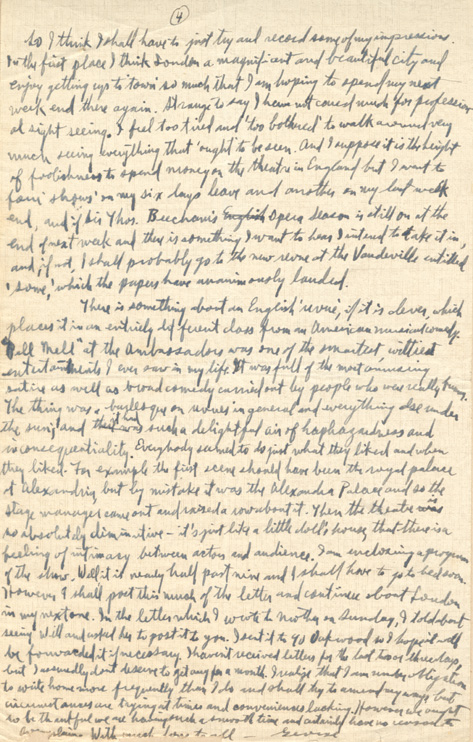 (4)
so I think I shall have to just try and record some of my impressions.
In the first place I think London a magnificent and beautiful city and
enjoy getting up to town so much that I am hoping to spend my next
week end there again. Strange to say I have not cared much for
at sight seeing. I feel too tired and 'too bothered' to walk around very
much seeing everything that 'ought to be seen. And I suppose it is the height
of foolishness to spend money on the theatre in England but I went to
four 'shows' on my six days leave and another on my last week
end, and if Sir Thos. Beecham's English Opera season is still on at the
end of next week and there is something I want to hear I intend to take it in,
and, if not, I shall probably go to the new revue at the Vaudeville entitled
'Some,' which the papers have unanimously lauded.
There is something about an English 'revue', if it is clever, which
places it in an entirely different class from an American musical comedy.
"Pell Mell" at the Ambassadors was one of the smartest, wittiest
entertainments I ever saw in my life. It was full of the most amusing
satire as well as broad comedy carried out by people who were really funny.
The thing was a burlesque on revues in general and everything else under
the sun, and there was such a delightful air of haphazardness and
inconsequentiality. Everybody seemed to do just what they liked and when
they liked. For example the first scene should have been the royal palace
at Alexandria but by mistake it was the Alexandra Palace and so the
stage manager came out and raised a row about it. Then the theatre was
so absolutely diminutive – it's just like a little doll's house, that there is a
feeling of intimacy between actors and audience. I am enclosing a program
of the show. Well it is nearly half past nine and I shall have to go to bed soon.
However I shall post this much of the letter and continue about London
in my next one. In the letter which I wrote to Mother on Sunday, I told about
seeing Will and asked her to post it to you. I sent it to 90 Oakwood so I hope it will
be forwarded if necessary. I haven't received letters for the last two or three days,
but I assuredly don't deserve to get any for a month. I realize that I am under obligation
to write home more frequently than I do and shall try to amend my ways but
circumstances are trying at times and conveniences lacking. However we ought
to be thankful we are having such a smooth time and certainly have no reason to
complain. With much love to all – George